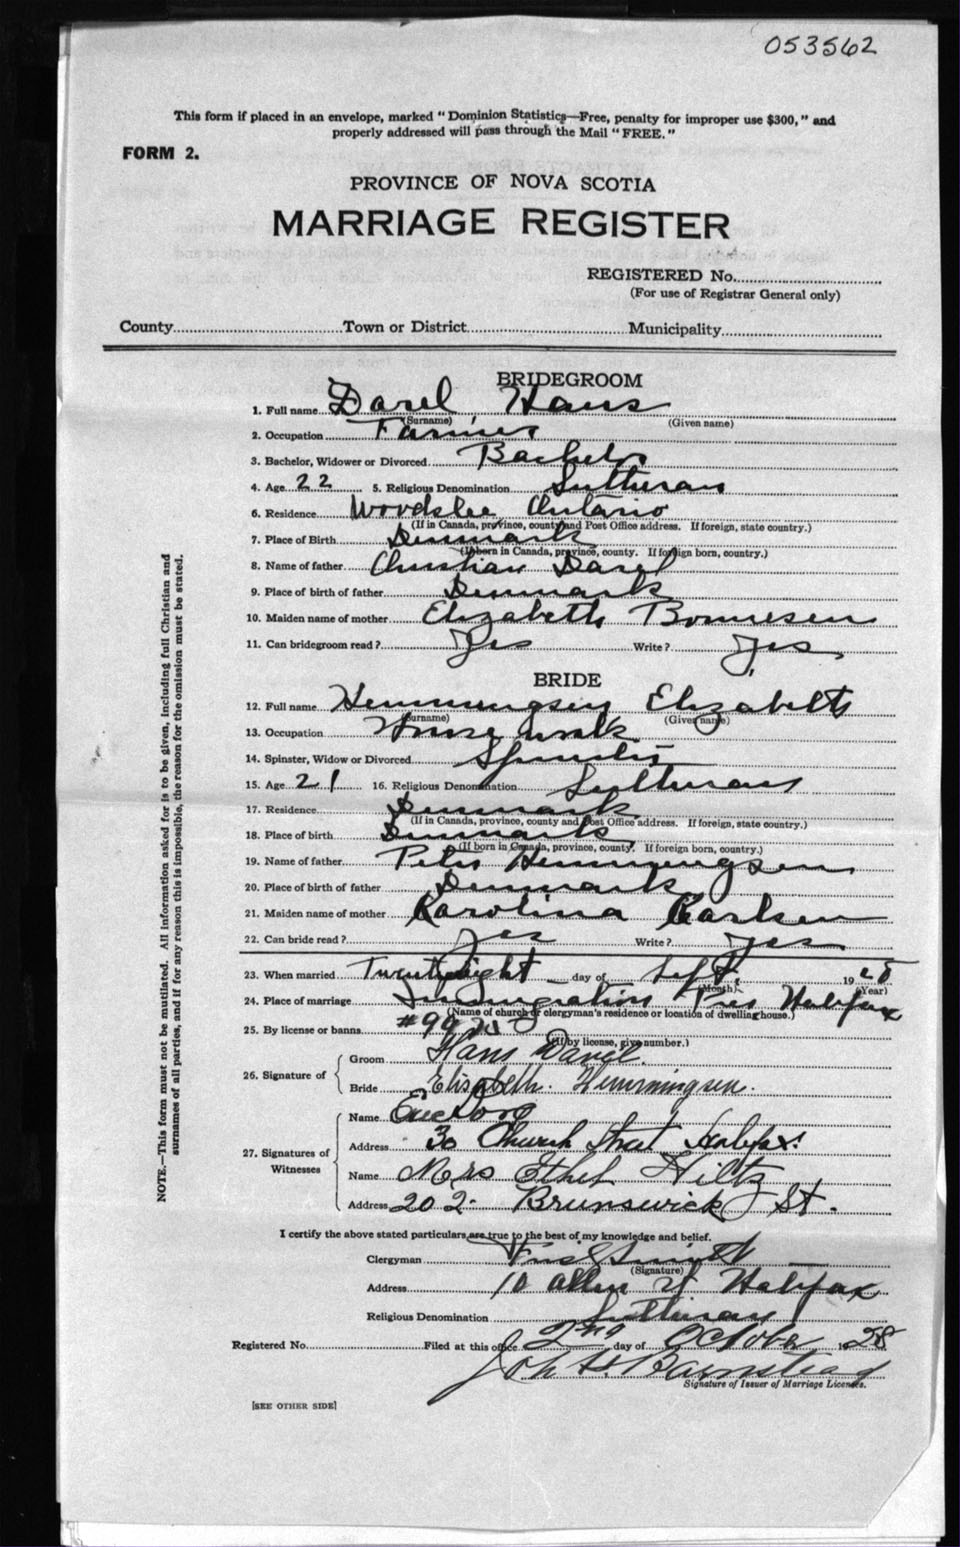 053562
This form if placed in an envelope, marked "Dominion Statistics—Free, penalty for improper use $300," and
properly addressed will pass through the Mail "FREE."
FORM 2.
PROVINCE OF NOVA SCOTIA
MARRIAGE REGISTER
REGISTERED No.
(For use of Registrar General only)
County Town or District Municipality
BRIDEGROOM
1. Full name Hans
(Surname) (Given name)
2. Occupation Farmer
3. Bachelor, Widower or Divorced Bachelor
4. Age 22 5. Religious Denomination Lutheran
6. Residence Woodslee Ontario
(If in Canada, province, county and Post Office address. If foreign, state country.)
7. Place of Birth Denmark
(If born in Canada, province, county. If foreign born, country.)
8. Name of father Christian
9. Place of birth of father Denmark
10. Maiden name of mother Elizabeth Bonnesen
11. Can bridegroom read? Yes Write? Yes
BRIDE
12. Full name Hemmingsen Elizabeth
(Surname) (Given name)
13. Occupation House work
14. Spinster, Widow or Divorced Spinster
15. Age 21 16. Religious Denomination Lutheran
17. Residence Denmark
(If in Canada, province, county and Post Office address. If foreign, state country.)
18. Place of birth Denmark
(If born in Canada, province, county. If foreign born, country.)
19. Name of father Peter Hemmingsen
20. Place of birth of father Denmark
21. Maiden name of mother Karolina Karlsen
22. Can bride read? Yes Write? Yes
23. When married Twenty eight day of Sept. 1928
(Month) (Year)
24. Place of marriage Immigration Pier Halifax
(Name of church or clergyman's residence or location of dwelling house.)
25. By license or banns #99
(If by license, give number.)
26. Signature of Groom Hans
Bride Elisabeth Hemmingsen.
27. Signatures of Witnesses
Name
Address 30 Church Street Halifax.
Name Mrs Ethel Hiltz
Address 202 Brunswick St.
I certify the above stated particulars are true to the best of my knowledge and belief.
Clergyman
(Signature)
Address 10 Allen St Halifax
Religious Denomination Lutheran
Registered No. Filed at this office 2nd day of October 1928
Signature of Issuer of Marriage Licenses.
[SEE OTHER SIDE]
NOTE.—This form must not be mutilated. All information asked for is to be given, including full Christian and
surnames of all parties, and if for any reason this is impossible, the reason for the omission must be stated.